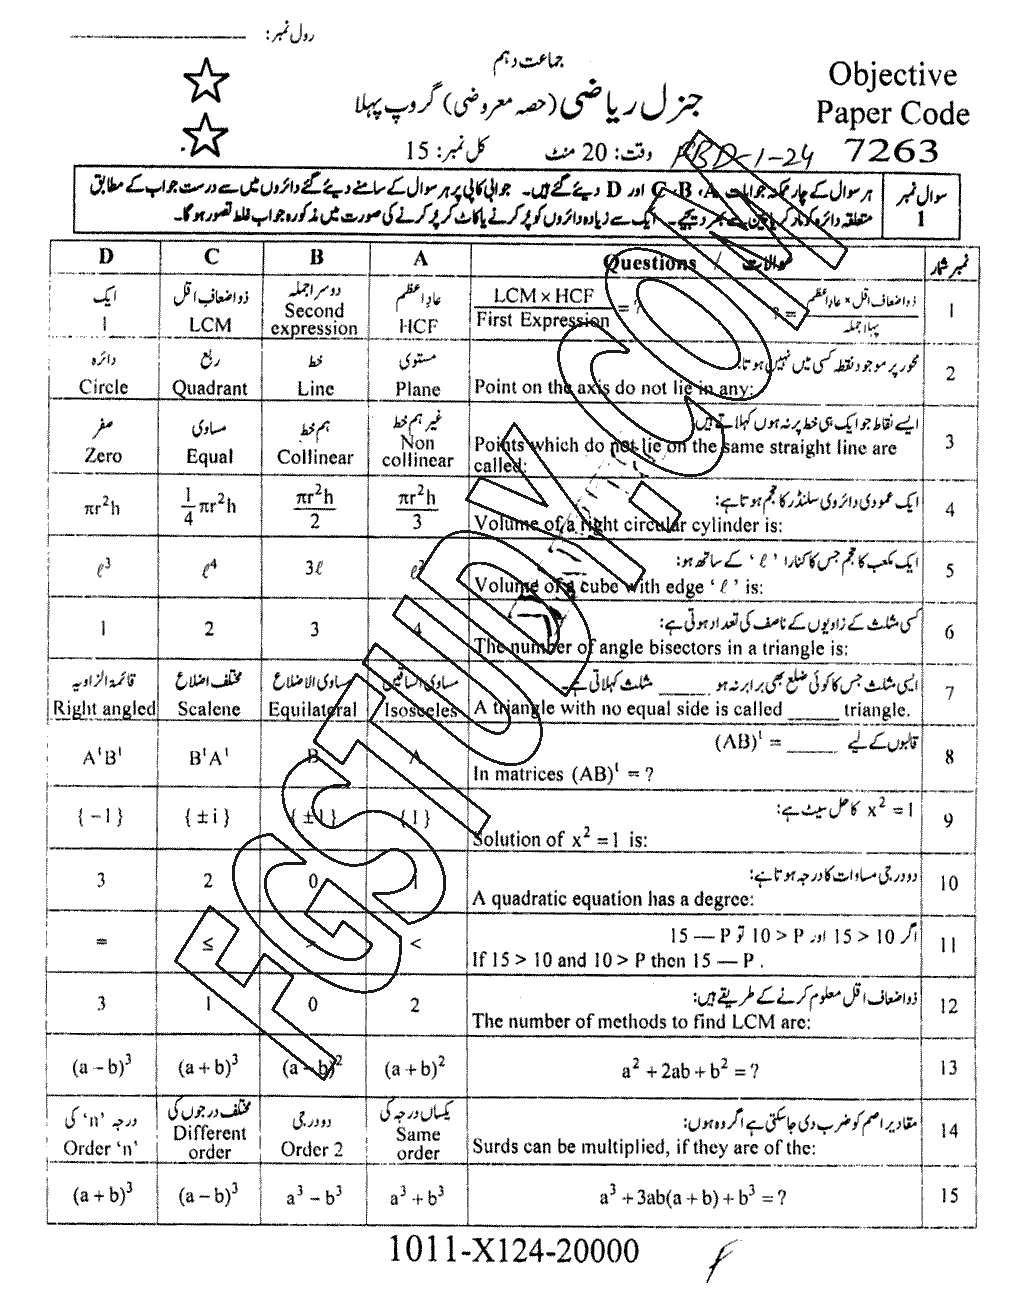 رول نمبر:
جماعت دہم
جنرل ریاضی (حصہ معروضی) گروپ پہلا
وقت: 20 منٹ کل نمبر: 15
Objective
Paper Code
7263
سوال نمبر 1
ہر سوال کے چار ممکنہ جوابات A، B، C اور D دیئے گئے ہیں۔ جوابی کاپی پر ہر سوال کے سامنے دیئے گئے دائروں میں سے درست جواب کے مطابق
متعلقہ دائرہ کو مارکر یا پین سے بھر دیجیے۔ ایک سے زیادہ دائروں کو پُر کرنے یا کاٹ کر پُر کرنے کی صورت میں مذکورہ جواب غلط تصور ہو گا۔
D C B A Questions / سوالات نمبر شمار
ایک ذواضعاف اقل دوسرا جملہ عاد اعظم ذواضعاف اقل × عاد اعظم / پہلا جملہ = ? 1
1 LCM Second expression HCF LCM × HCF / First Expression = ?
دائرہ ربع خط مستوی محور پر موجود نقطہ کسی میں نہیں ہوتا: 2
Circle Quadrant Line Plane Point on the axis do not lie in any:
صفر مساوی ہم خط غیر ہم خط ایسے نقاط جو ایک ہی خط پر نہ ہوں کہلاتے ہیں 3
Zero Equal Collinear Non collinear Points which do not lie on the same straight line are
called:
ایک عمودی دائروی سلنڈر کا حجم ہوتا ہے: 4
πr²h 1/4 πr²h πr²h/2 πr²h/3 Volume of a right circular cylinder is:
ایک مکعب کا حجم جس کا کنارا 'ℓ' کے ساتھ ہو: 5
ℓ³ ℓ⁴ 3ℓ Volume of a cube with edge 'ℓ' is:
کسی مثلث کے زاویوں کے ناصف کی تعداد ہوتی ہے: 6
1 2 3 4 The number of angle bisectors in a triangle is:
قائمۃ الزاویہ مختلف اضلاع مساوی الاضلاع مساوی الساقین ایسی مثلث جس کا کوئی ضلع بھی برابر نہ ہو ____ مثلث کہلاتی ہے۔ 7
Right angled Scalene Equilateral Isosceles A triangle with no equal side is called ____ triangle.
قالبوں کے لیے (AB)ᵗ = ____ 8
AᵗBᵗ BᵗAᵗ B A In matrices (AB)ᵗ = ?
x² = 1 کا حل سیٹ ہے: 9
{−1} {±i} {±1} {1} Solution of x² = 1 is:
دو درجی مساوات کا درجہ ہوتا ہے: 10
3 2 0 1 A quadratic equation has a degree:
اگر 15 > 10 اور 10 > P تو 15 — P 11
= ≤ > < If 15 > 10 and 10 > P then 15 — P .
ذواضعاف اقل معلوم کرنے کے طریقے ہیں: 12
3 1 0 2 The number of methods to find LCM are:
(a − b)³ (a + b)³ (a − b)² (a + b)² a² + 2ab + b² = ? 13
درجہ 'n' کی مختلف درجوں کی دو درجی یکساں درجہ کی مقادیر اصم کو ضرب دی جاسکتی ہے اگر وہ ہوں: 14
Order 'n' Different order Order 2 Same order Surds can be multiplied, if they are of the:
(a + b)³ (a − b)³ a³ − b³ a³ + b³ a³ + 3ab(a + b) + b³ = ? 15
1011-X124-20000
FGSTUDY.COM